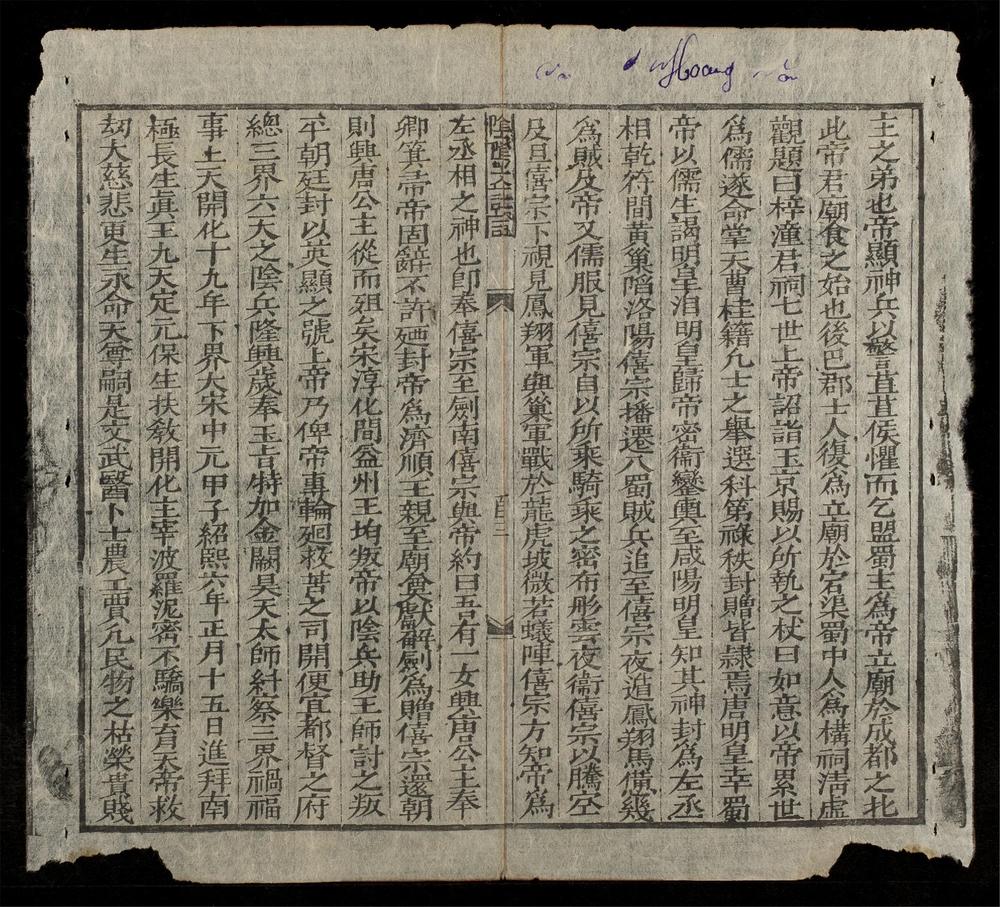 Hoang
主之弟也帝顯神兵以警苴苴侯懼而乞盟蜀主爲帝立廟於成都之北
此帝君廟食之始也後巴郡士人復爲立廟於宕渠蜀中人爲構祠淸虛
觀題曰梓潼君祠七世上帝詔詣玉京賜以所執之杖曰如意以帝累世
爲儒遂命掌天曹桂籍凢士之擧選科第祿秩封贈皆隷焉唐明皇幸蜀
帝以儒生謁明皇洎明皇歸帝密衞鑾輿至咸陽明皇知其神封爲左丞
相乾符間黃巢陷洛陽僖宗播遷入蜀賊兵追至僖宗夜遁鳳翔馬僃幾
爲賊及帝又儒服見僖宗自以所乘騎乘之密布形雲夜衞僖宗以騰空
及旦僖宗下視見鳳翔軍與巢軍戰於龍虎坡微若蟻陣僖宗方知帝爲
百三
左丞相之神也卽奉僖宗至劍南僖宗與帝約曰吾有一女興唐公主奉
卿箕帚帝固辭不許廼封帝爲濟順王親至廟奠獻解劍爲贈僖宗還朝
則興唐公主從而殂矣宋淳化間益州王均叛帝以陰兵助王師討之叛
平朝廷封以英顯之號上帝乃俾帝專輪廻救苦之司開便宜都督之府
總三界六大之陰兵隆興歲奉玉旨特加金闕昊天太師糾察三界禍福
事上天開化十九年下界大宋中元甲子紹熙六年正月十五日進拜南
極長生眞王九天定元保生扶敎開化主宰波羅泥密不驕樂育天帝救
刼大慈悲更生永命天尊嗣是文武醫卜士農工賈凢民物之枯榮貴賤